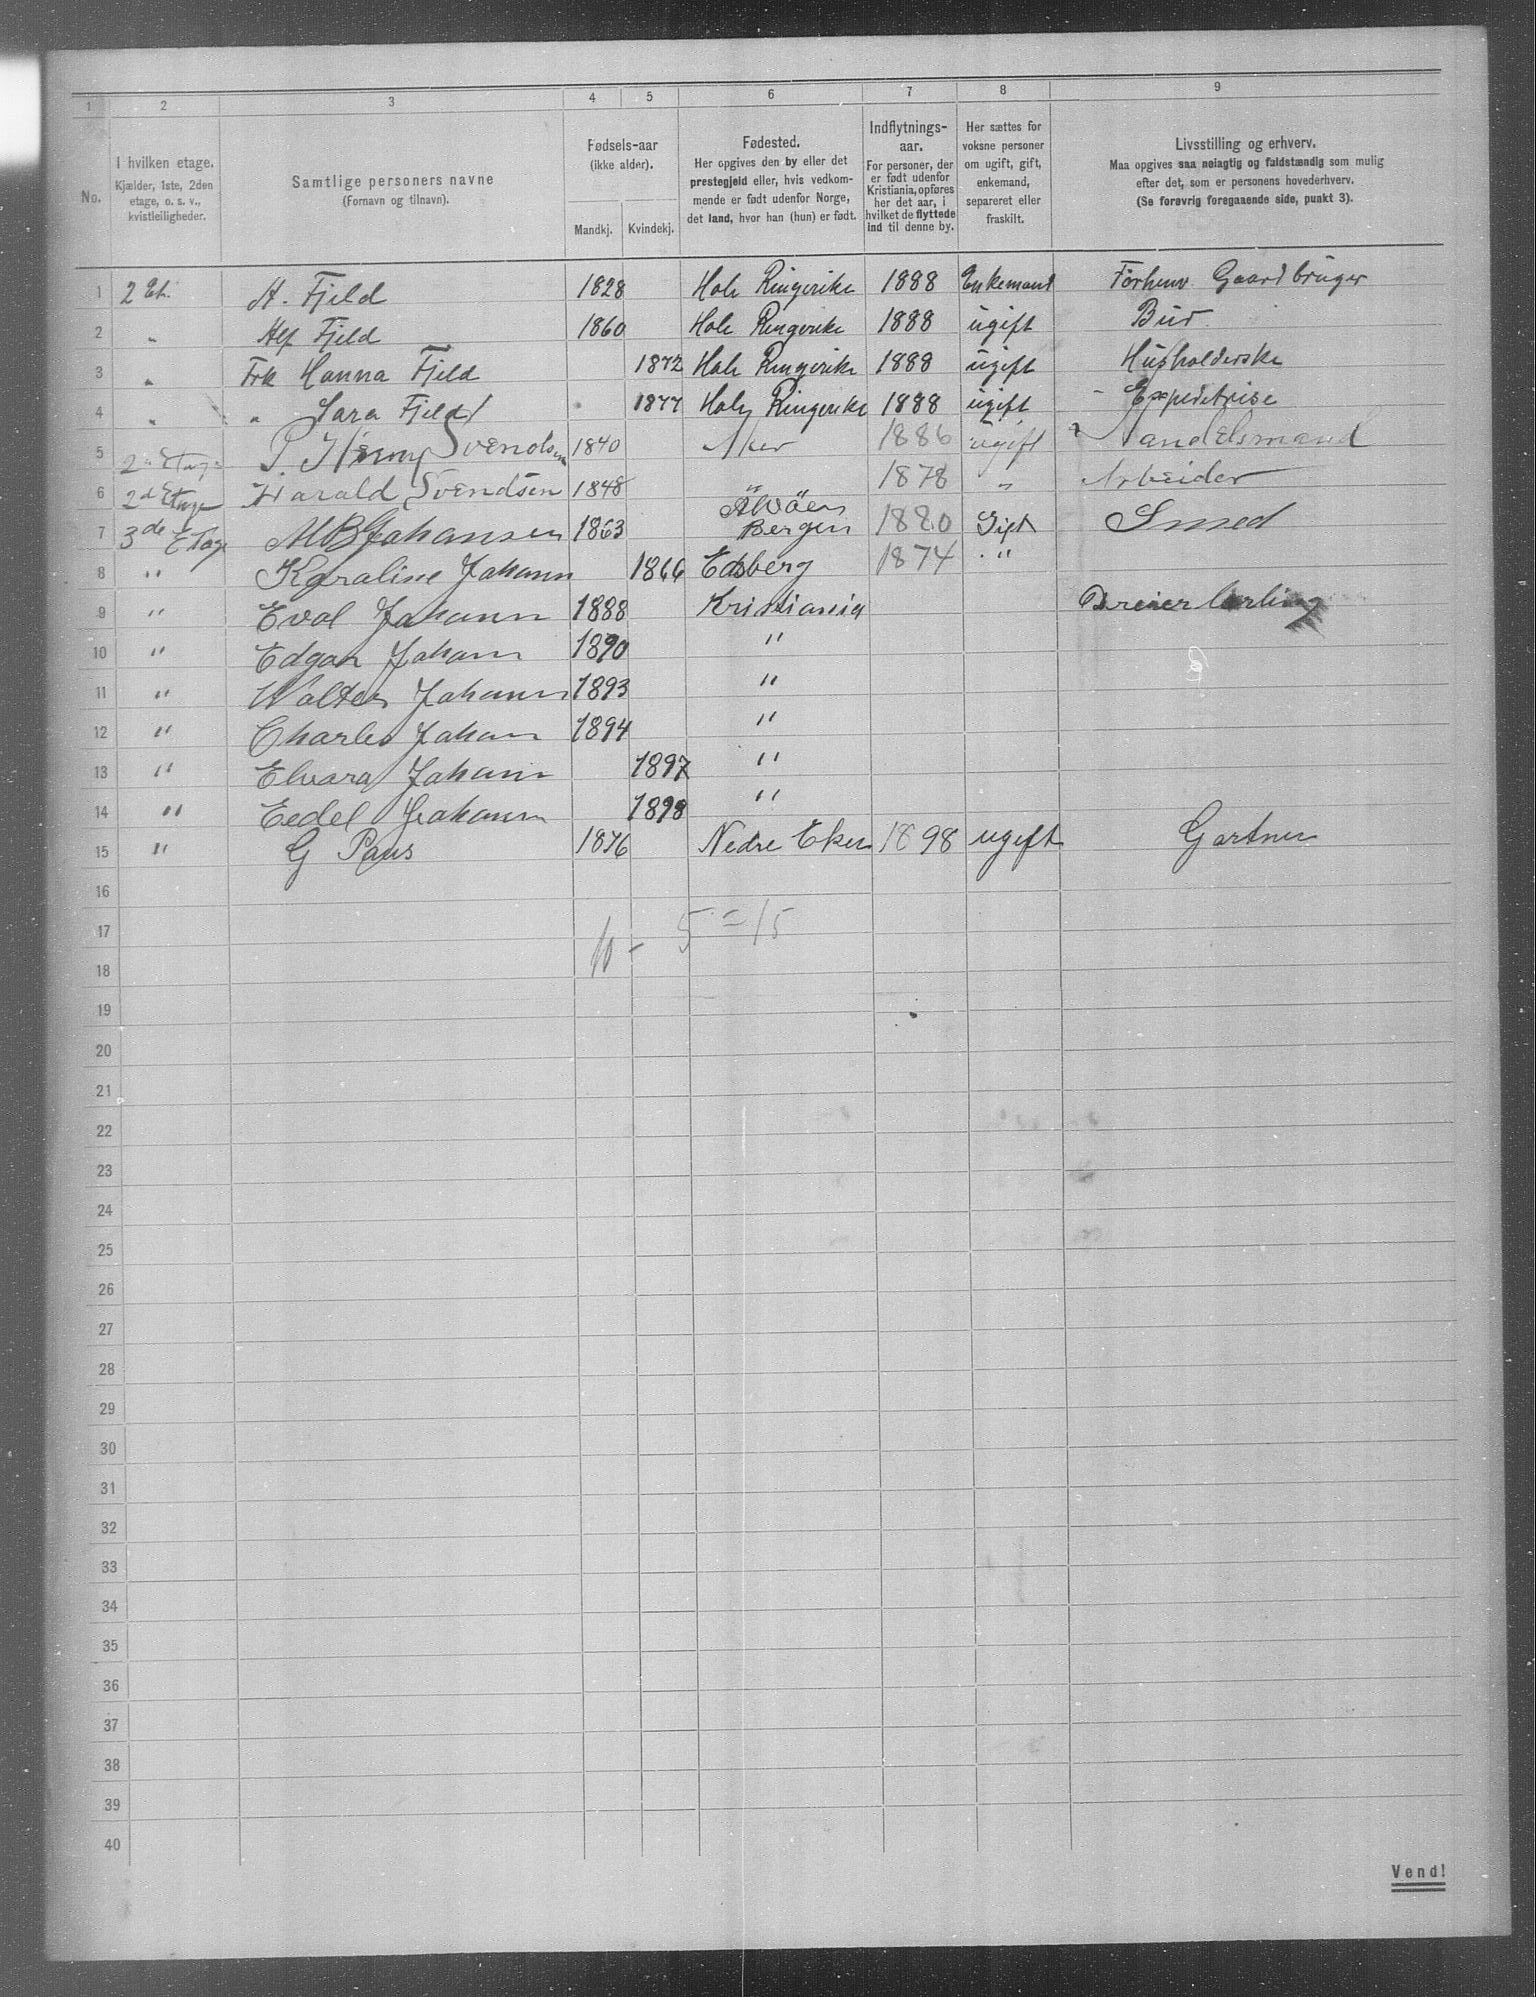 1 2 3 4 5 6 7 8 9
No.
I hvilken etage.
Kjælder, 1ste, 2den
etage, o. s. v.,
kvistleiligheder.
Samtlige personers navne
(Fornavn og tilnavn).
Fødsels-aar
(ikke alder).
Mandkj. Kvindekj.
Fødested.
Her opgives den by eller det
prestegjeld eller, hvis vedkom-
mende er født udenfor Norge,
det land, hvor han (hun) er født.
Indflytnings-
aar.
For personer, der
er født udenfor
Kristiania, opføres
her det aar, i
hvilket de flyttede
ind til denne by.
Her sættes for
voksne personer
om ugift, gift,
enkemand,
separeret eller
fraskilt.
Livsstilling og erhverv.
Maa opgives saa nøiagtig og fuldstændig som mulig
efter det, som er personens hovederhverv.
(Se forøvrig foregaaende side, punkt 3).
1 2 Et. A. Fjeld 1828 Hole Ringerike 1888 Enkemand Forhenv. Gaardbruger
2 " Alf Fjeld 1860 Hole Ringerike 1888 ugift Bud
3 " Frk Hanna Fjeld 1872 Hole Ringerike 1888 ugift Husholderske
4 " " Sara Fjeld 1877 Hole Ringerike 1888 ugift Expeditrise
5 2n Etage P. Henny Svendsen 1840 Aker 1886 ugift Handelsmand
6 2d Etage Harald Svendsen 1848 " 1878 " Arbeider
7 3de Etage M B Johansen 1863 Bergen 1880 Gift Smed
8 " Karoline Johann 1866 Edsberg 1874 "
9 " Eval Johann 1888 Kristiania Dreier lærling
10 " Edgar Johann 1890 "
11 " Walter Johann 1893 "
12 " Charles Johann 1894 "
13 " Elvara Johann 1897 "
14 " Eedel Johann 1898 "
15 " G Paus 1876 Nedre Eker 1898 ugift Gartner
16
17
10 - 5 = 15
18
19
20
21
22
23
24
25
26
27
28
29
30
31
32
33
34
35
36
37
38
39
40
Vend!